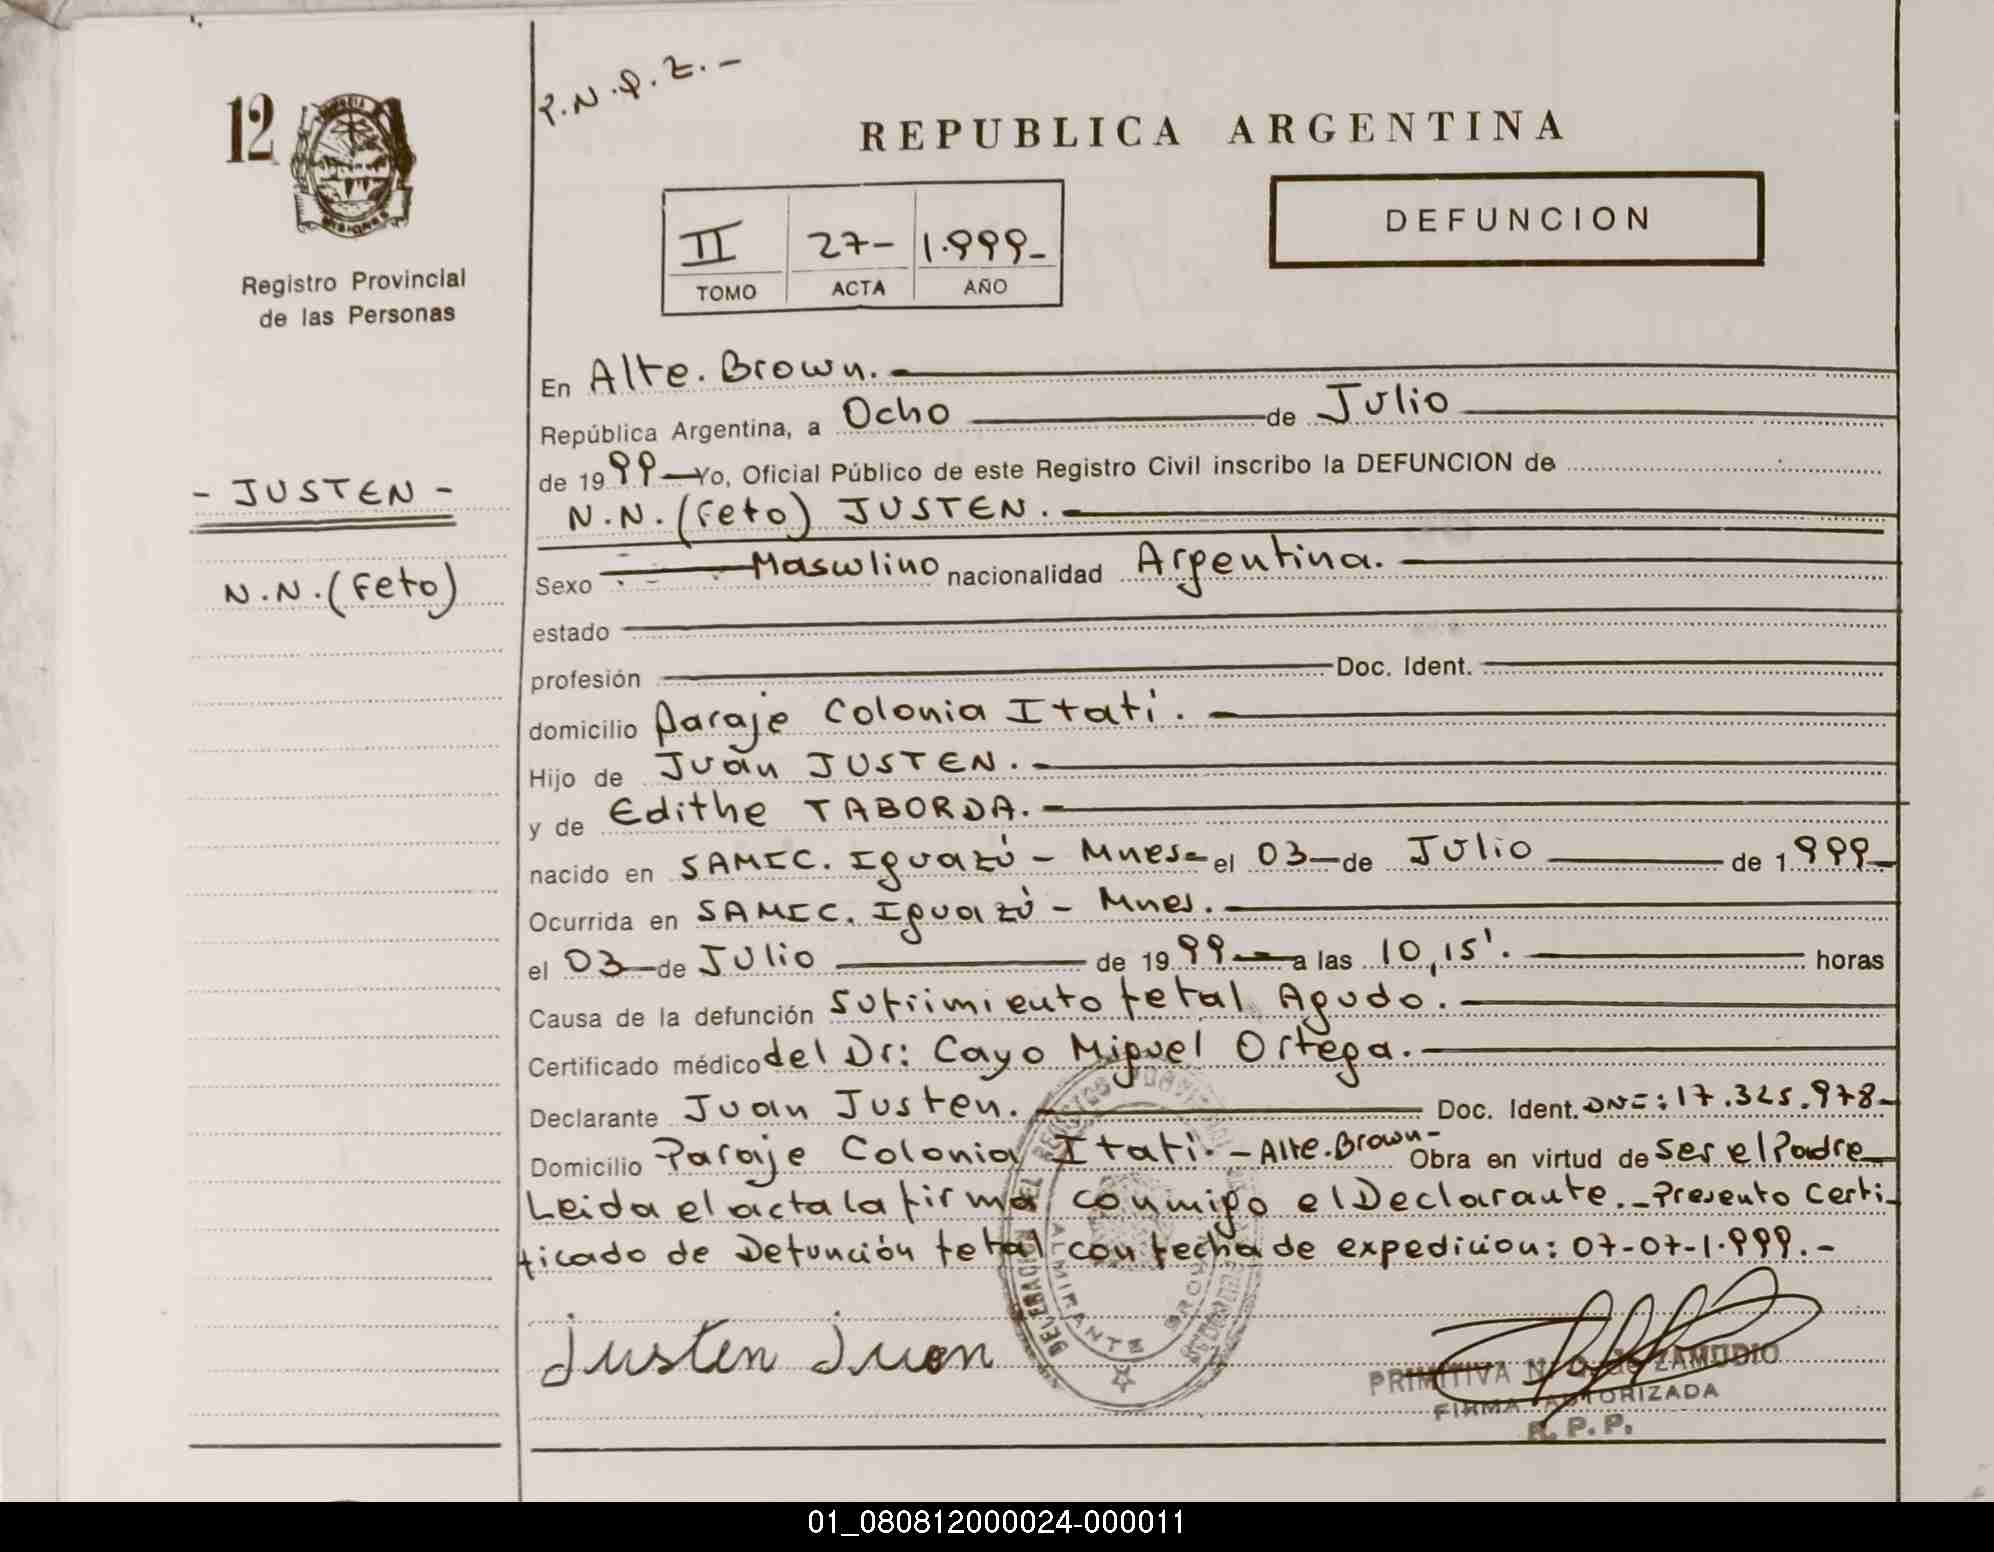 P.N.P.Z.-
12
REPUBLICA ARGENTINA
MISIONES
Registro Provincial
de las Personas
II 27- 1.999-
TOMO ACTA AÑO
DEFUNCION
- JUSTEN -
N.N. (Feto)
En Alte. Brown.
República Argentina, a Ocho de Julio
de 1999 Yo, Oficial Público de este Registro Civil inscribo la DEFUNCION de
N.N. (Feto) JUSTEN.
Sexo Masculino nacionalidad Argentina.
estado
profesión Doc. Ident.
domicilio Paraje Colonia Itatí.
Hijo de Juan JUSTEN.
y de Edithe TABORDA.
nacido en SAMIC. Iguazú - Mnes= el 03 de Julio de 1.999
Ocurrida en SAMIC. Iguazú - Mnes.
el 03 de Julio de 1999 a las 10,15'. horas
Causa de la defunción Sufrimiento fetal Agudo.
Certificado médico del Dr: Cayo Miguel Ortega.
Declarante Juan Justen. Doc. Ident. DNI: 17.325.978-
Domicilio Paraje Colonia Itatí. - Alte. Brown- Obra en virtud de ser el Padre
Leida el acta la firma conmigo el Declarante. - Presento Certi-
ficado de Defunción fetal con fecha de expedición: 07-07-1.999. -
ALMIRANTE BROWN
Justen Juan
PRIMITIVA ZAMUDIO
FIRMA AUTORIZADA
R. P. P.
01_080812000024-000011